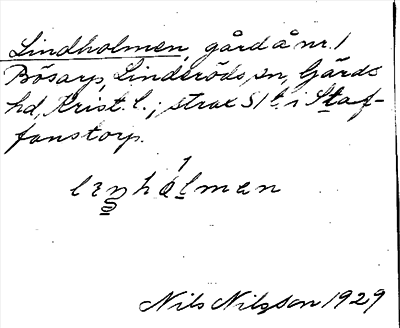 Lindholmen, gård å nr. 1
Bösarp, Linderöds, sn, Gärds
hd, Krist. l.; strax S l. i Staf-
fanstorp.
Nils Nilsson 1929